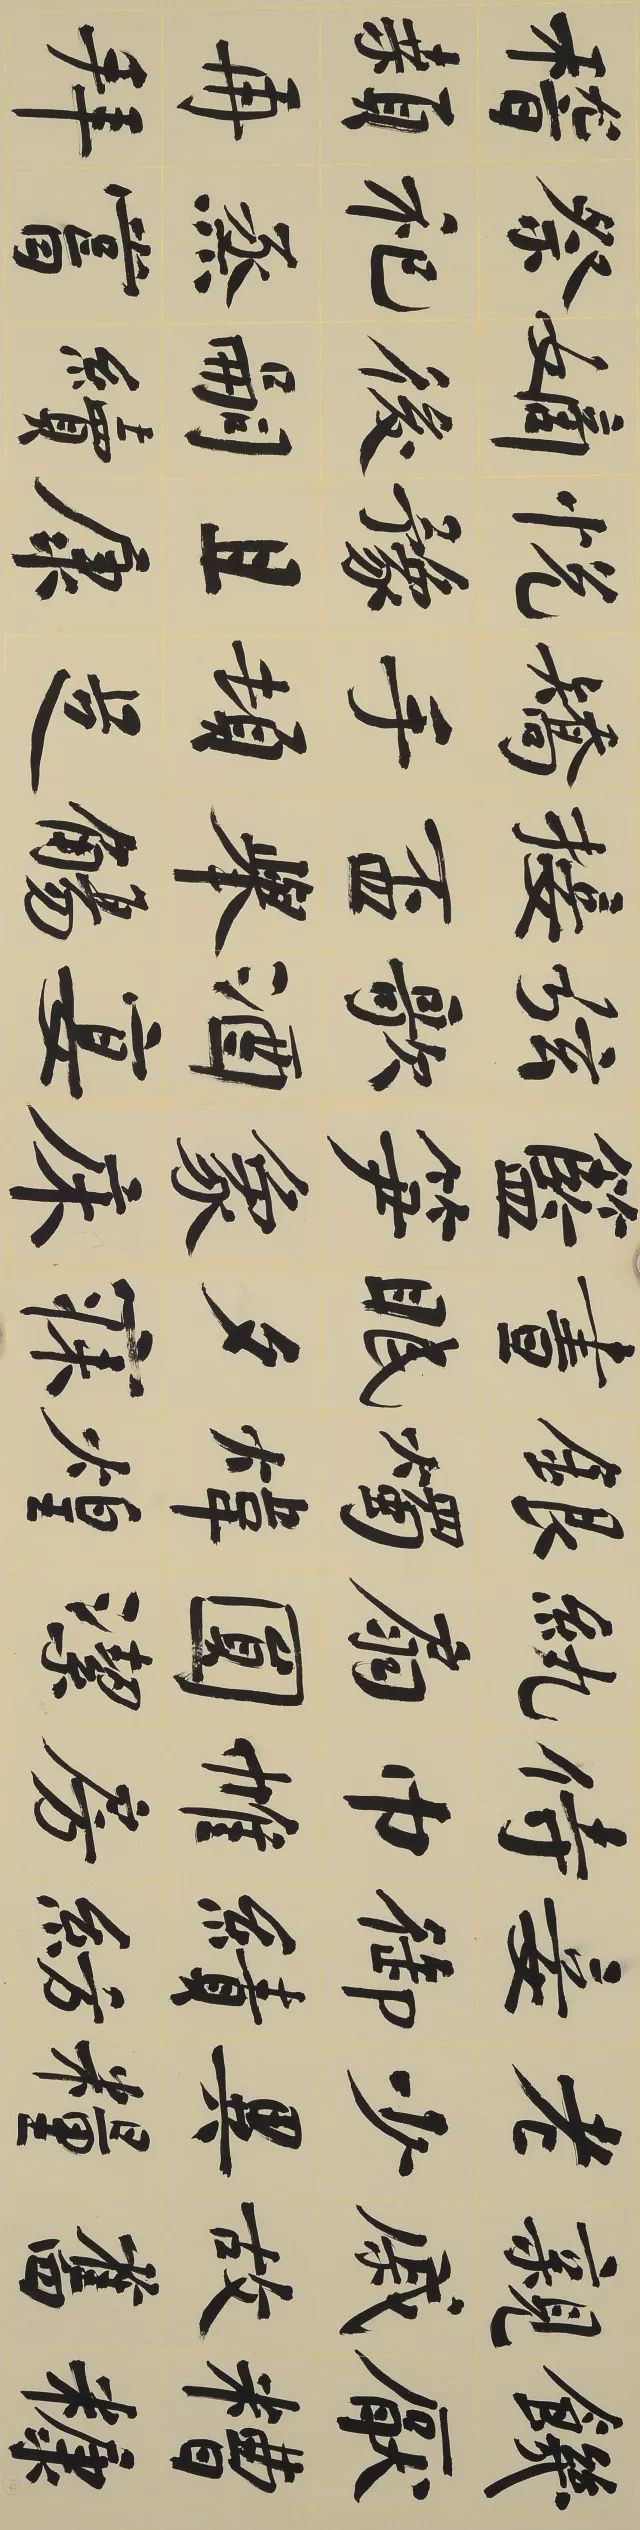 饑厭糟糠
親戚故舊
老少異糧
妾御績紡
侍巾帷房
紈扇圓潔
銀燭煒煌
晝眠夕寐
籃笋象床
弦歌酒宴
接盃舉觴
矯手頓足
悅豫且康
嫡後嗣續
祭祀蒸嘗
稽顙再拜